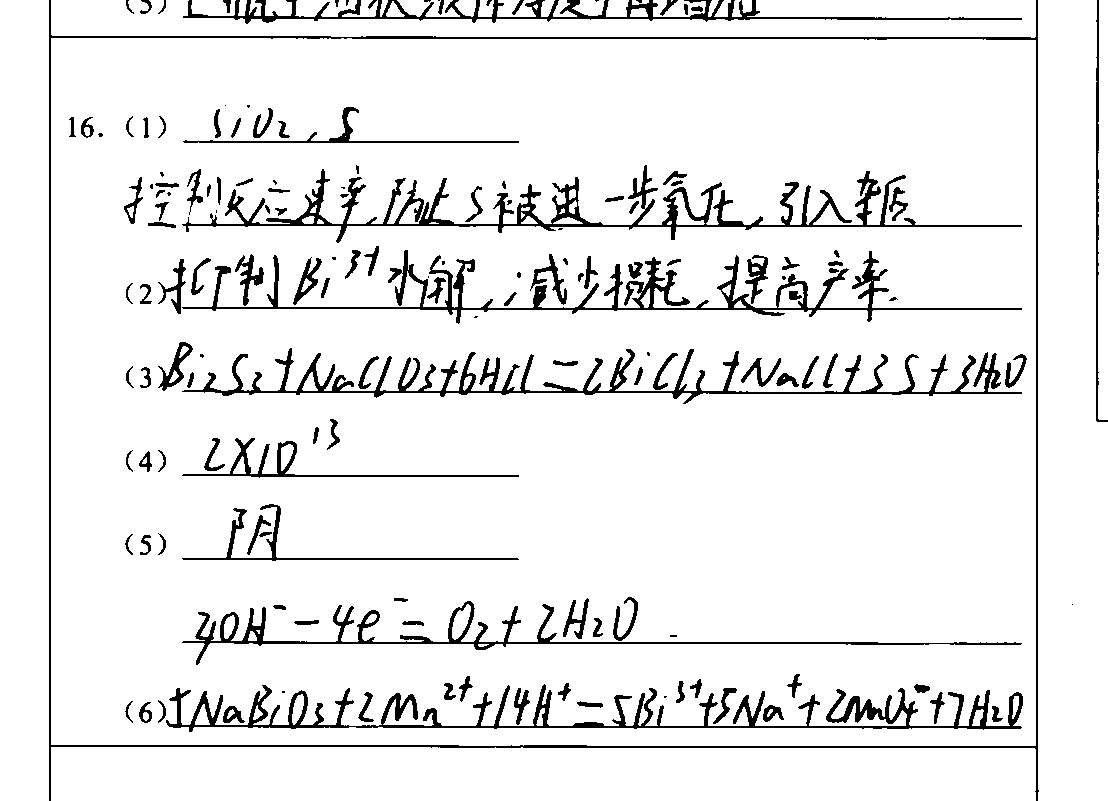 16. (1) SiO₂, S
控制反应速率,防止S被进一步氧化,引入杂质
(2) 抑制Bi³⁺水解,减少损耗,提高产率.
(3) Bi₂S₃+NaClO₃+6HCl=2BiCl₃+NaCl+3S+3H₂O
(4) 2×10¹³
(5) 阴
4OH⁻-4e⁻=O₂+2H₂O
(6) 5NaBiO₃+2Mn²⁺+14H⁺=5Bi³⁺+5Na⁺+2MnO₄⁻+7H₂O